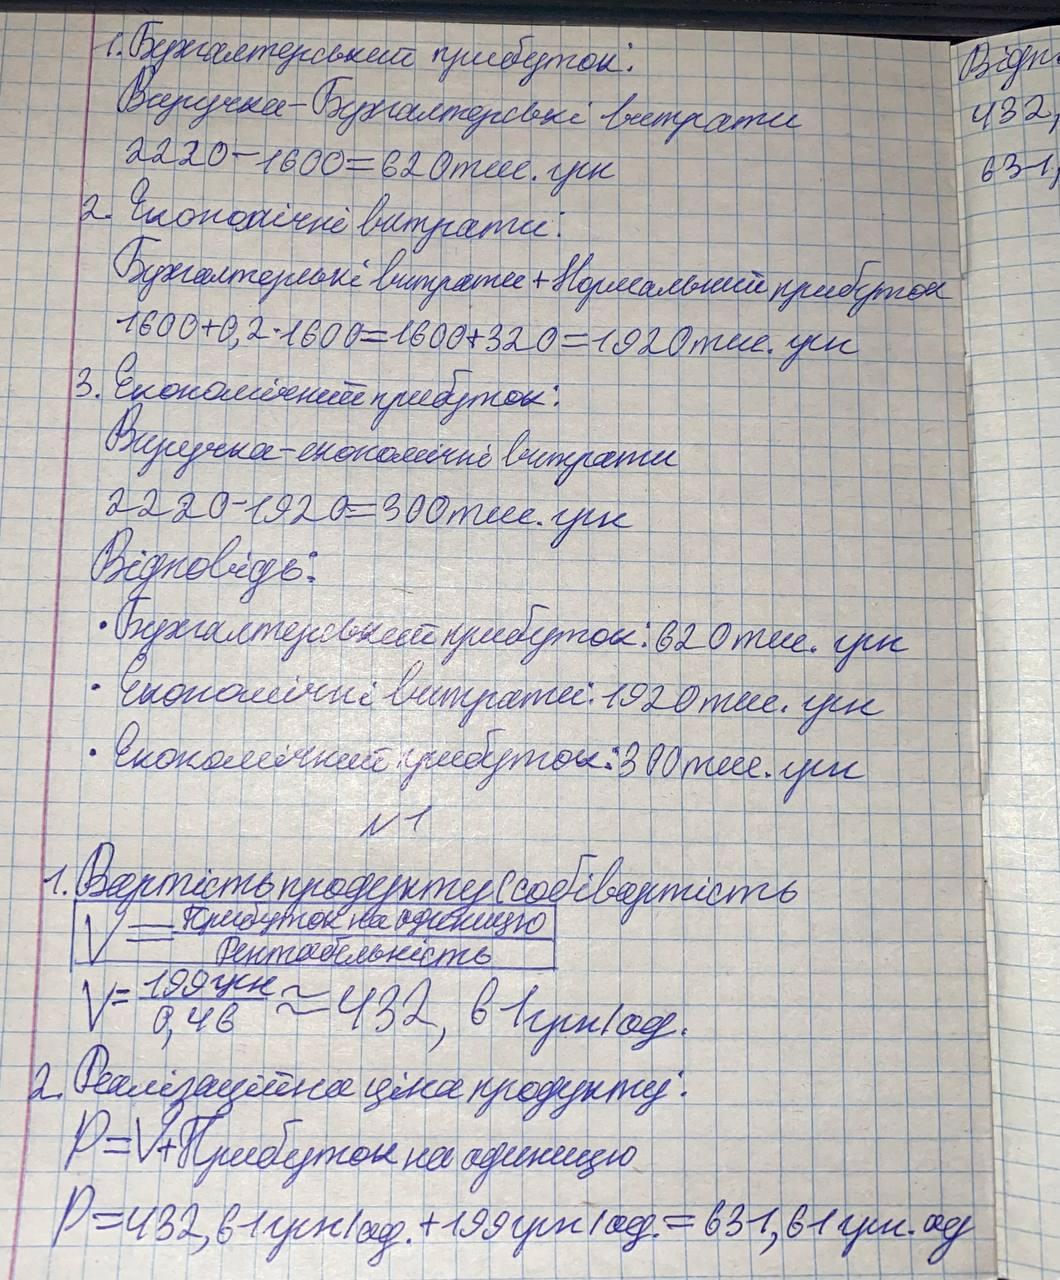 1. Бухгалтерський прибуток:
Виручка-Бухгалтерські витрати
2220-1600=620 тис. грн
2. Економічні витрати:
Бухгалтерські витрати + Нормальний прибуток
1600+0,2·1600=1600+320=1920 тис. грн
3. Економічний прибуток:
Виручка-економічні витрати
2220-1920=300 тис. грн
Відповідь:
• Бухгалтерський прибуток: 620 тис. грн
• Економічні витрати: 1920 тис. грн
• Економічний прибуток: 300 тис. грн
№1
1. Вартість продукту (собівартість
V = Прибуток на одиницю
Рентабельність
V = 199 грн
0,46
≈ 432,61 грн/од.
2. Реалізаційна ціна продукту:
P=V+Прибуток на одиницю
P=432,61 грн/од. + 199 грн/од. = 631,61 грн. од
432,
631,